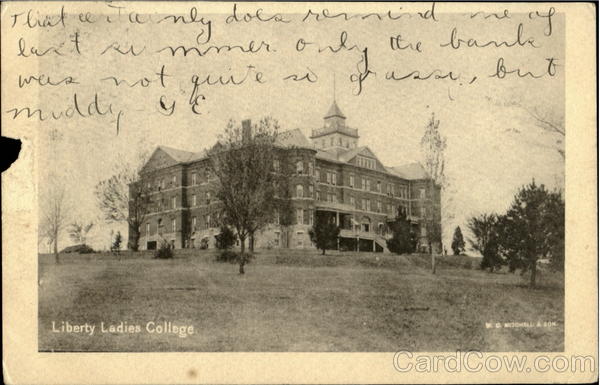 That certainly does remind me of
last summer only the bank
was not quite so grassy, but
muddy G E
Liberty Ladies College
W. D. MITCHELL & SON.
CardCow.com